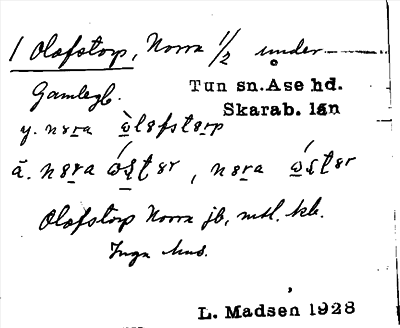 1 Olofstorp, Norra 1/2 under
Gamlegb.
Tun sn. Åse hd.
Skarab. län
y. nɐra òlɐfstɐrp
ä. nɐra óstɐr, nɐra óstɐr
Olofstorp Norra jb, mtl. kb.
Inga hus.
L. Madsen 1928